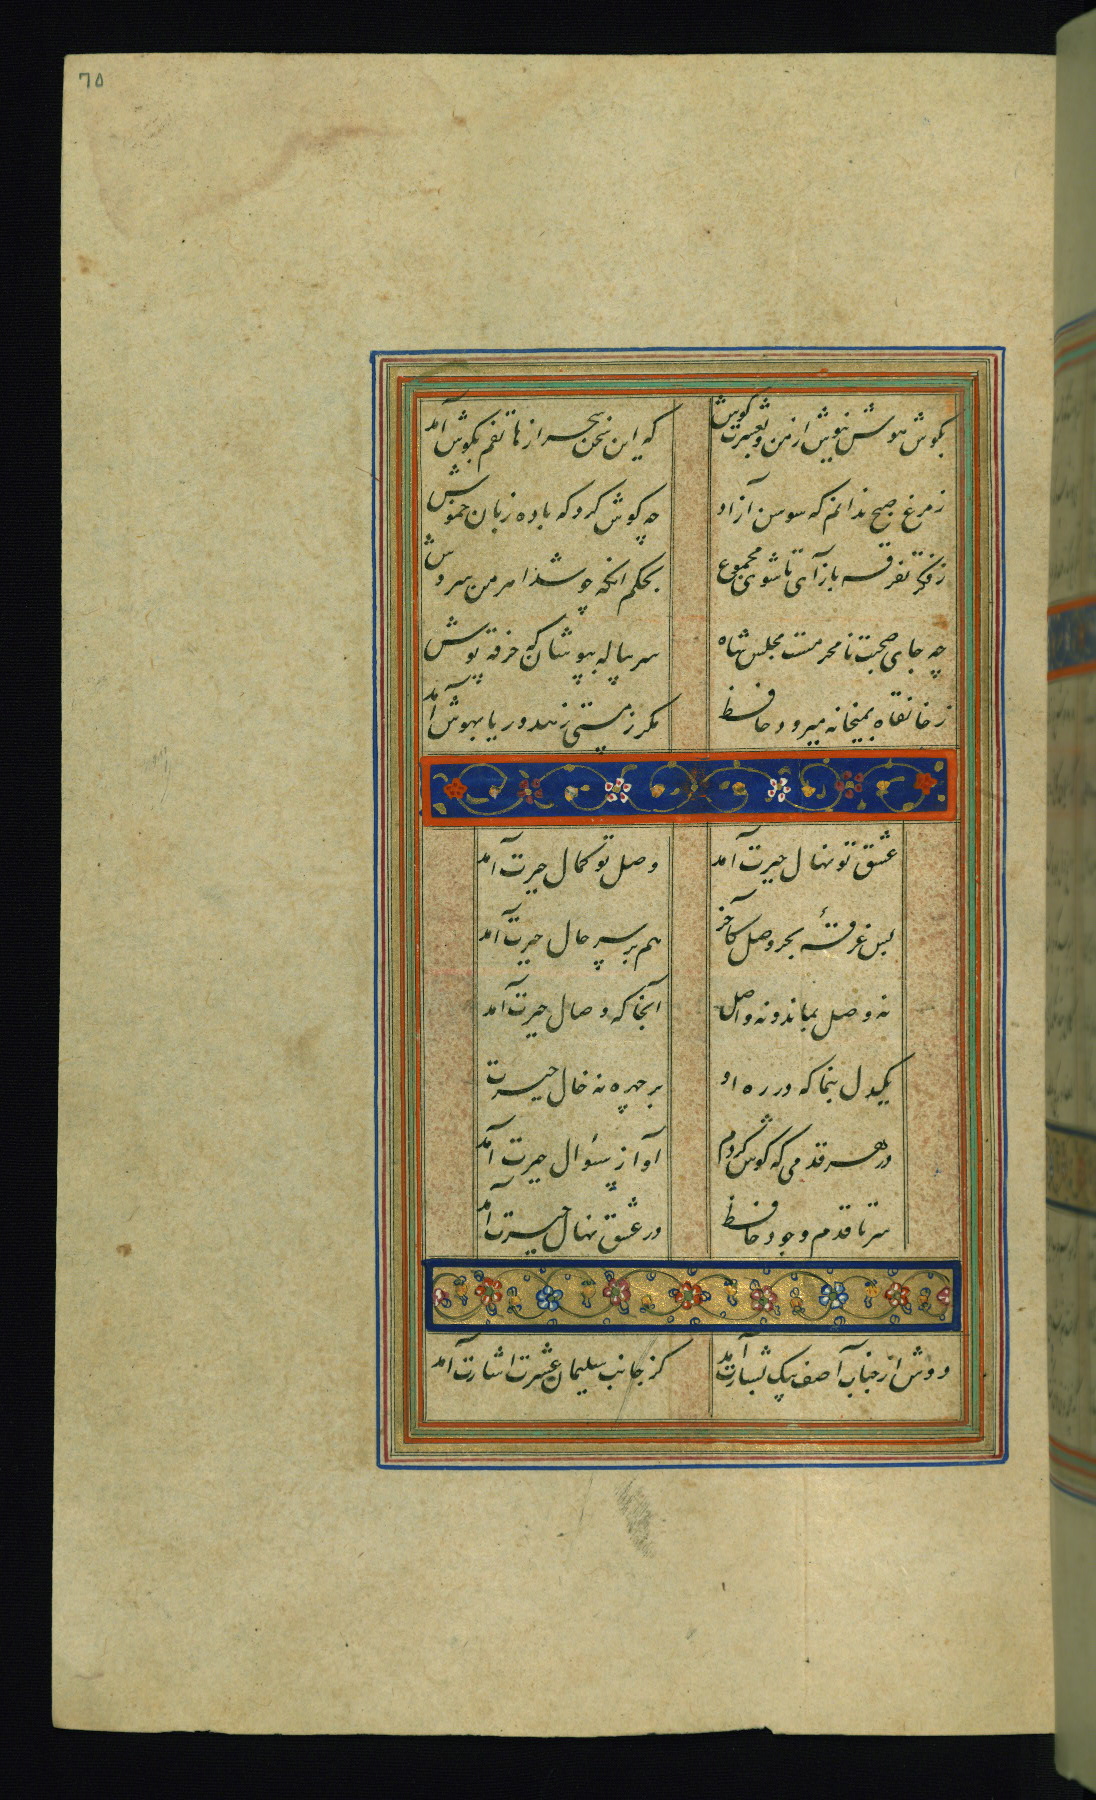 ٦٥
بکوش هوش نیوش از من و بعشرت کوش
که این سخن سحر از هاتفم بکوش آمد
ز مرغ صبح ندانم که سوسن آزاد
چه کوش کرد که با ده زبان خموش
ز فکر تفرقه باز آی تا شوی مجموع
بحکم انکه چو شد اهرمن سروش
چه جای صحبت نامحرمست مجلس شاه
سر پیاله بپوشان که خرقه پوش
ز خانقاه بمیخانه میرود حافظ
مکر ز مستی زهد و ریا بهوش آمد
عشق تو نهال حیرت آمد
وصل تو کمال حیرت آمد
بس غرقهٔ بحر وصل کآخر
هم بر سر حال حیرت آمد
نه وصل بماند و نه واصل
آنجا که وصال حیرت آمد
یکدل بنما که در ره او
بر چهره نه خال حیرت
در هر قدمی که کوش کردم
آواز سئوال حیرت آمد
سر تا قدم وجود حافظ
در عشق نهال حیرت آمد
دوش از جناب آصف پیک بشارت آمد
کز جانب سلیمان عشرت اشارت آمد